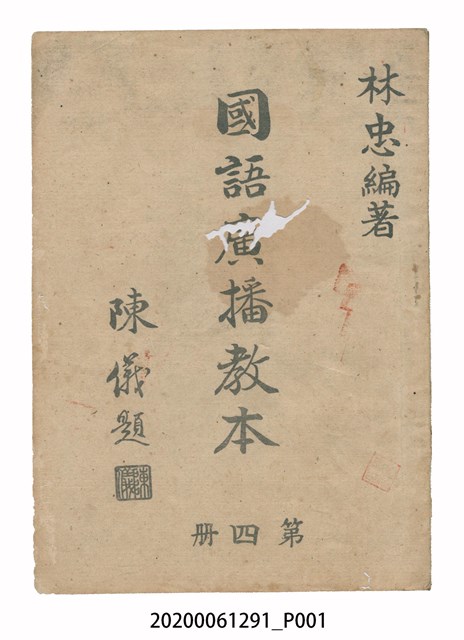 林忠編著
國語廣播教本
陳儀題
陳儀
第四册
20200061291_P001